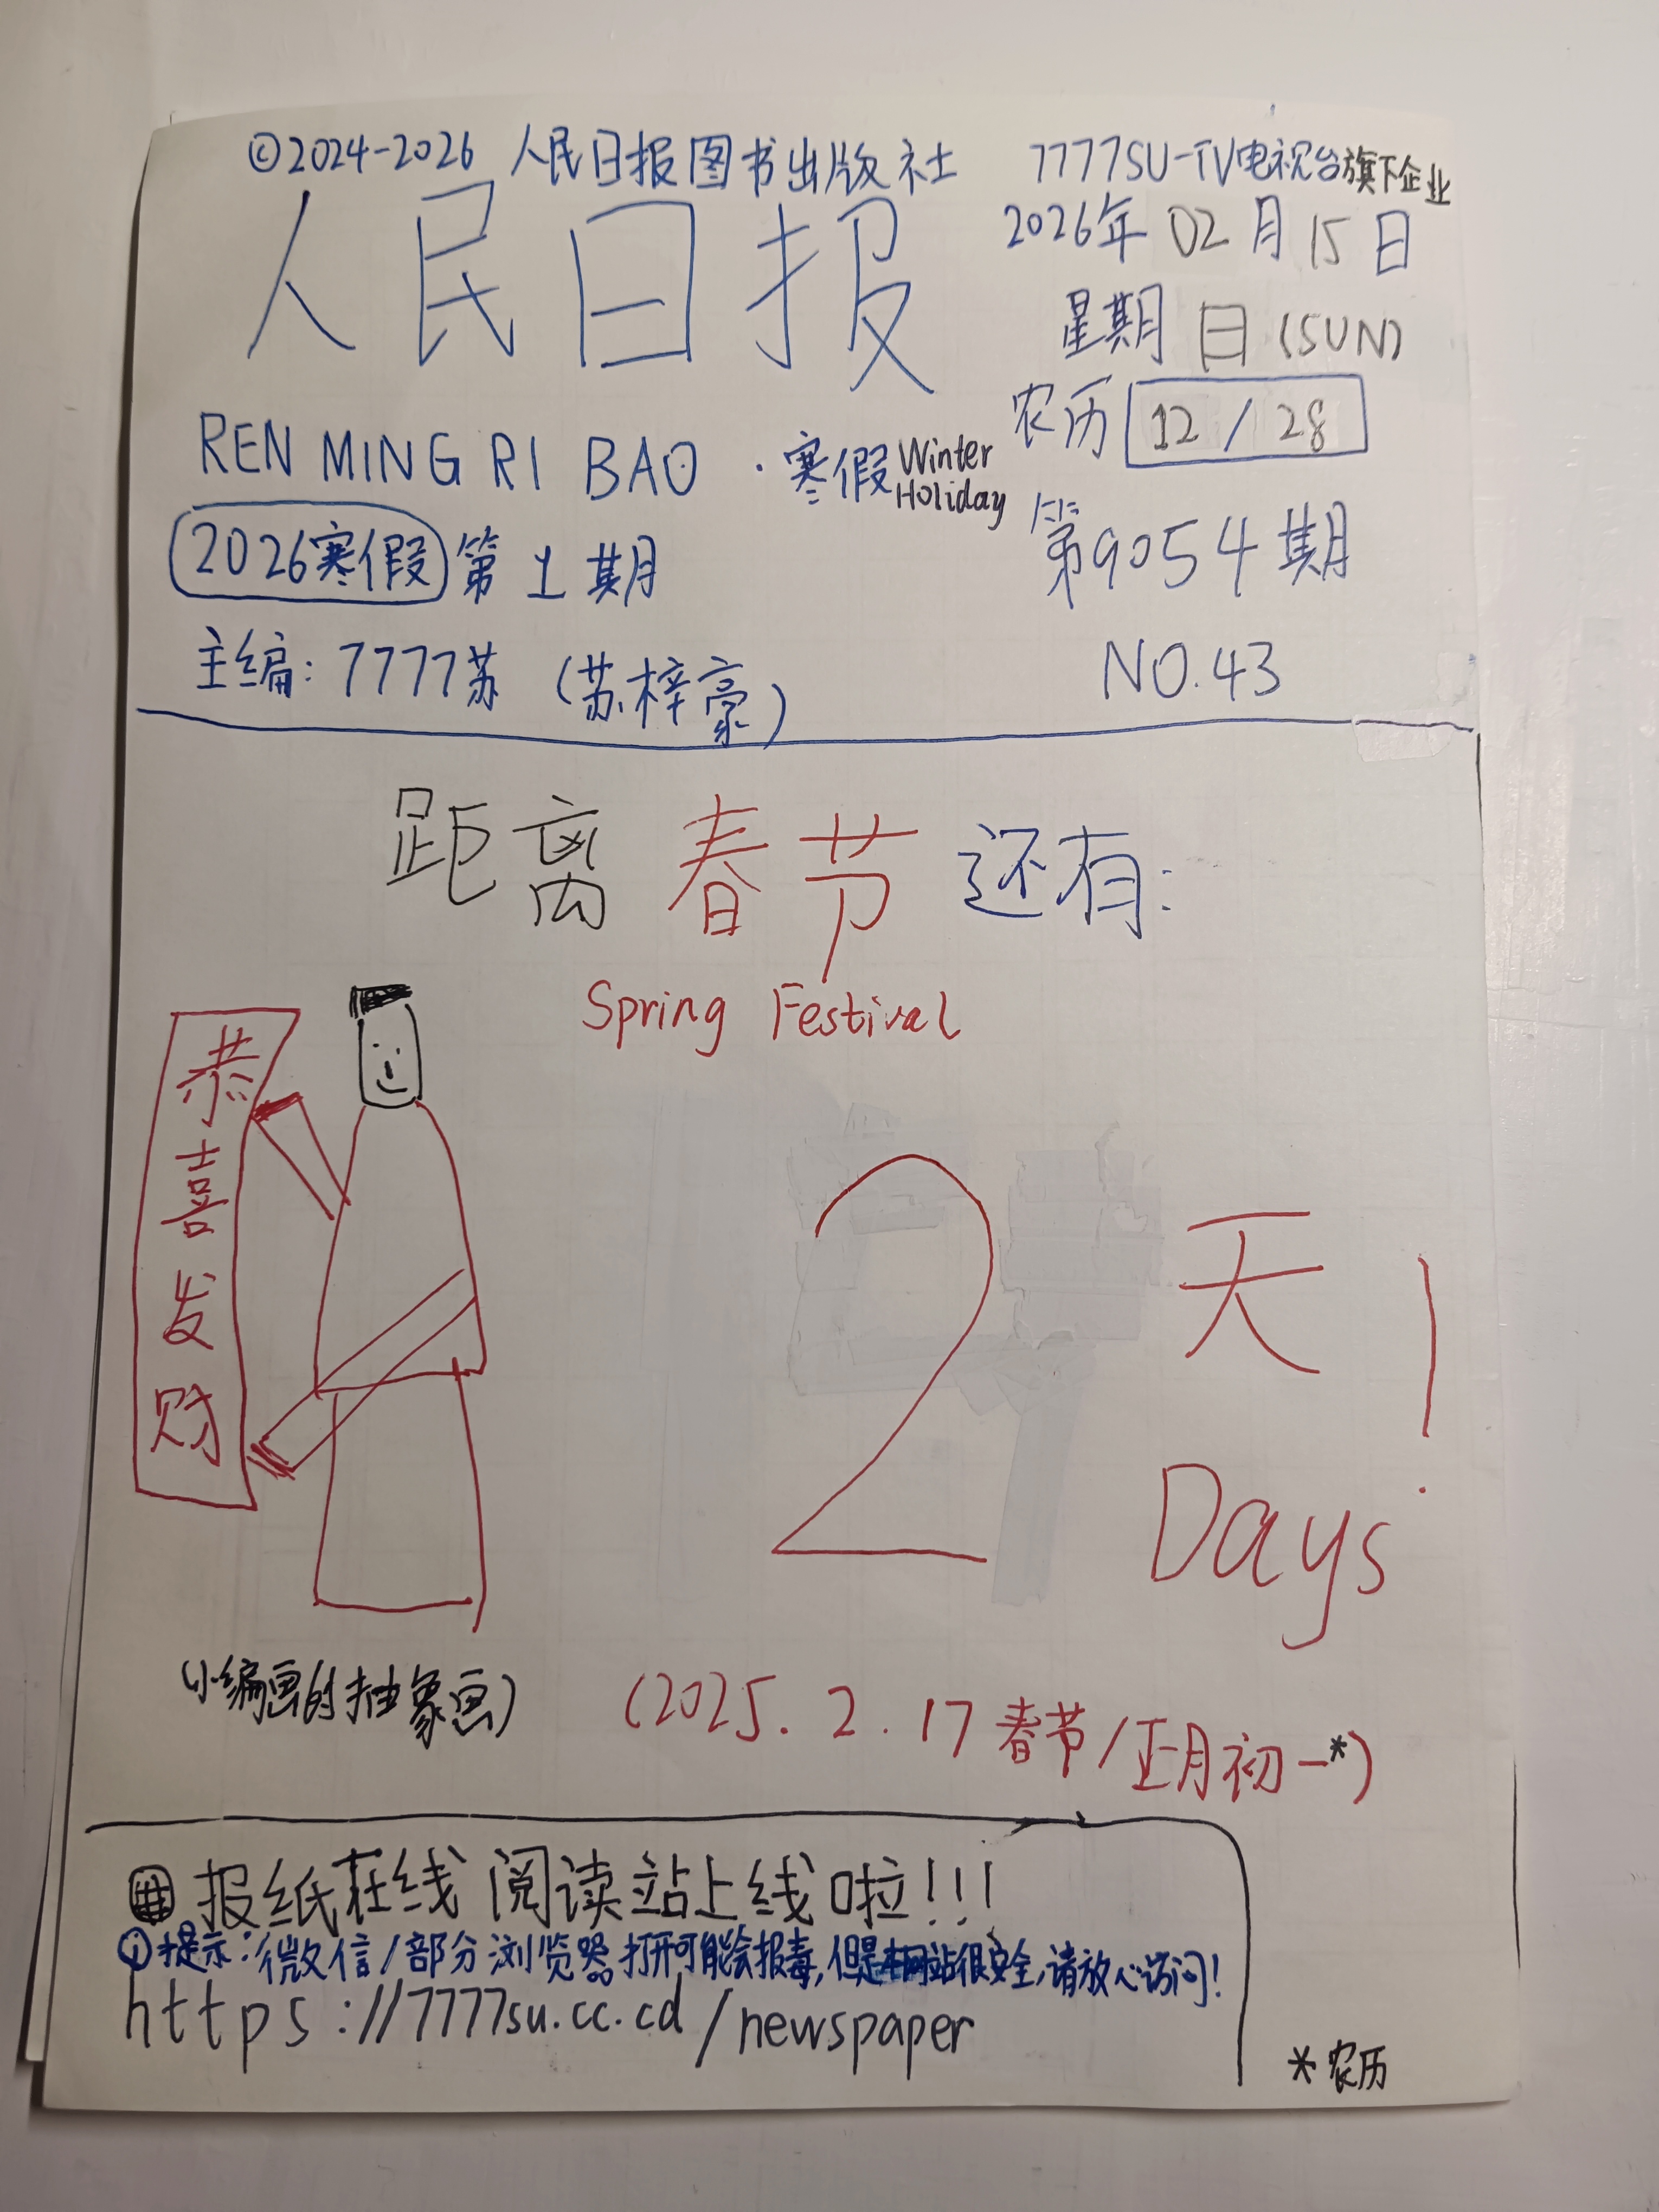 ©2024-2026 人民日报图书出版社 7777SU-TV电视台旗下企业
人民日报
2026年 02月 15日
星期日 (SUN)
农历 12/28
REN MING RI BAO ·寒假 Winter Holiday
2026寒假 第1期
第9054期
主编：7777苏（苏梓豪）
NO.43
距离春节还有：
Spring Festival
恭喜发财
2天！
Days
(小编画的抽象画)
(2025.2.17春节/正月初一*)
报纸在线阅读站上线啦!!!
①提示：微信/部分浏览器打开可能会报毒，但是本网站很安全，请放心访问！
https://7777su.cc.cd/newspaper
*农历